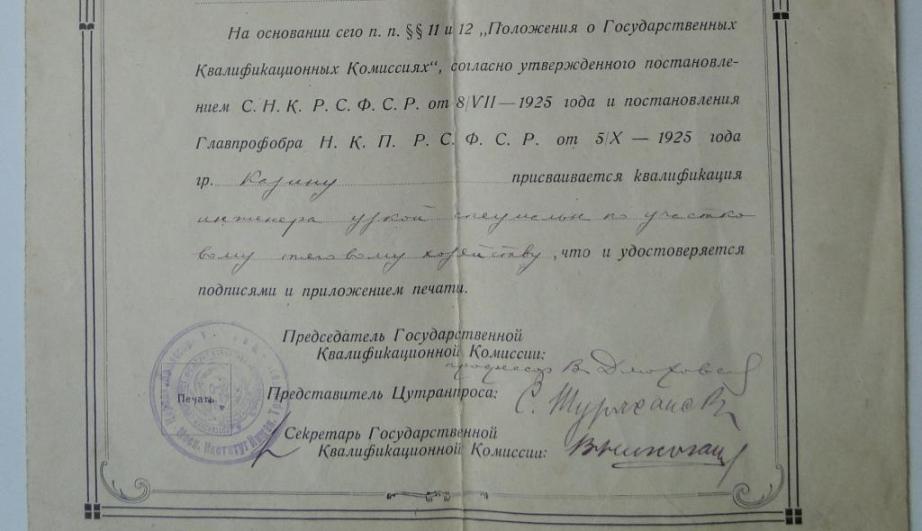 На основании сего п. п. §§ 11 и 12 „Положения о Государственных
Квалификационных Комиссиях“, согласно утвержденного постановле-
нием С. Н. К. Р. С. Ф. С. Р. от 8/VII — 1925 года и постановления
Главпрофобра Н. К. П. Р. С. Ф. С. Р. от 5/X — 1925 года
гр. Казину присваивается квалификация
инженера узкой специальн по участко
вому тяговому хозяйству, что и удостоверяется
подписями и приложением печати.
Председатель Государственной
Квалификационной Комиссии:
профессор В.
Представитель Цутранпроса:
С.
Печать
Секретарь Государственной
Квалификационной Комиссии:
Моск. Институт Инжен.